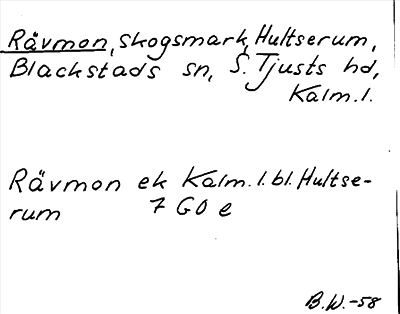 Rävmon, skogsmark, Hultserum,
Blackstads sn, S. Tjusts hd,
Kalm.l.
Rävmon ek Kalm.l.bl. Hultse-
rum 7 GO e
B.W.-58